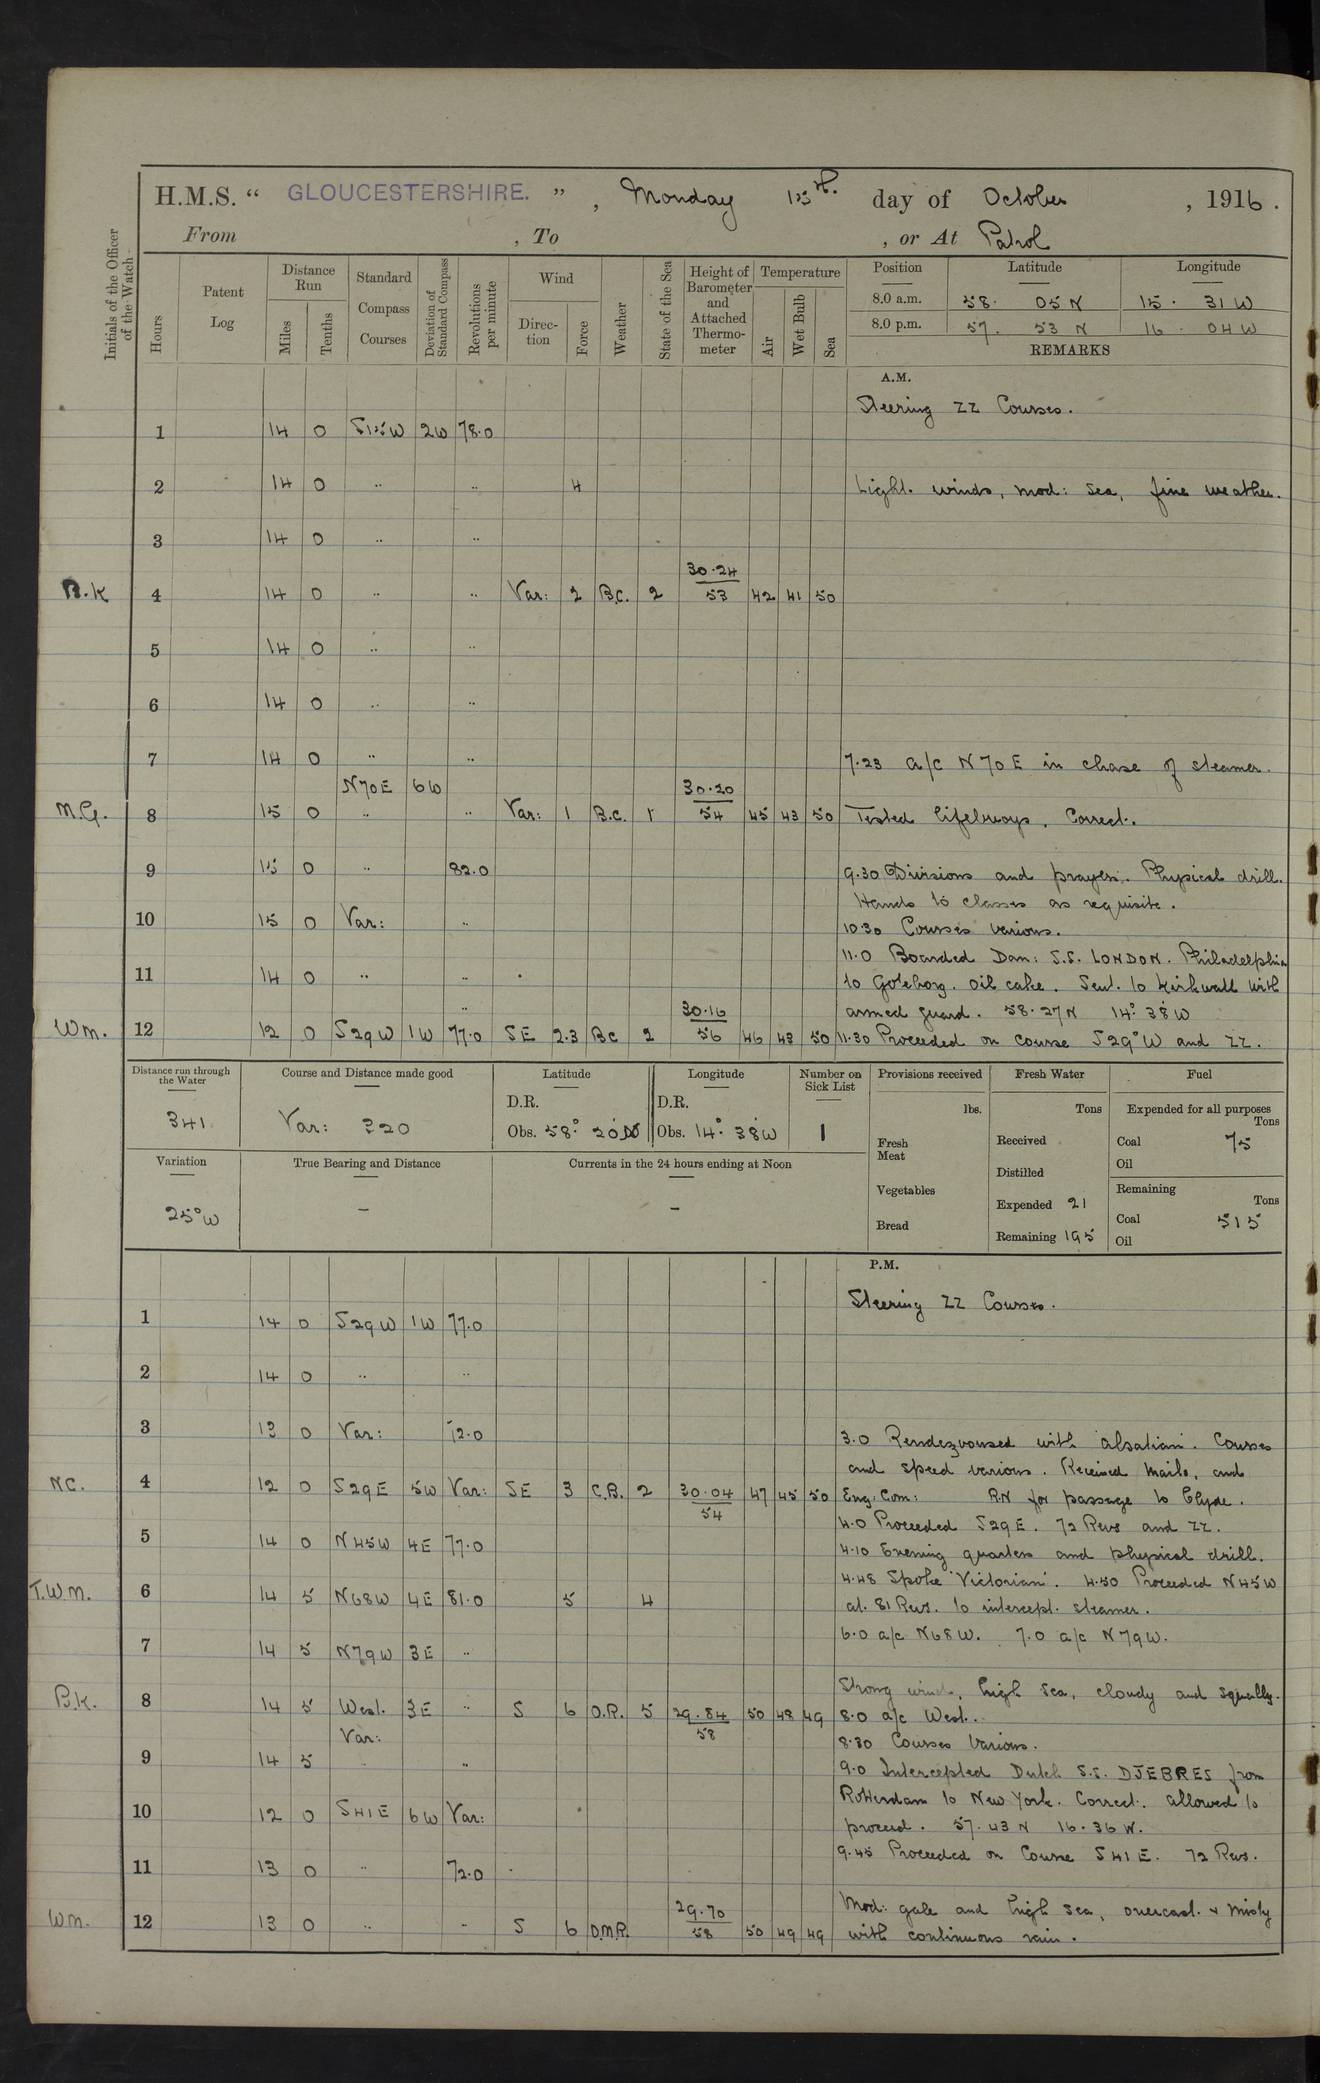 H.M.S. “ GLOUCESTERSHIRE. ” , Monday 15th. day of October , 1916 .
From , To , or At Patrol
Initials of the Officer of the Watch
Hours
Patent Log
Distance Run
Miles
Tenths
Standard Compass Courses
Deviation of Standard Compass
Revolutions per minute
Wind
Direc-tion
Force
Weather
State of the Sea
Height of Barometer and Attached Thermo-meter
Temperature
Air
Wet Bulb
Sea
Position Latitude Longitude
8.0 a.m. 58· 05 N 15· 31 W
8.0 p.m. 57. 53 N 16 · 04 W
REMARKS
A.M.
Steering ZZ Courses.
1 14 0 S15W 2W 78.0
2 14 0 " " 4 Light winds, mod: sea, fine weather.
3 14 0 " "
30.24
B.K 4 14 0 " " Var: 2 B.C. 2 53 42 41 50
5 14 0 " "
6 14 0 " "
7 14 0 " " 7.23 a/c N70E in chase of steamer.
N70E 6W 30.20
M.G. 8 15 0 " " Var: 1 B.C. 1 54 45 43 50 Tested lifebuoys. Correct.
9 15 0 " 82.0 9.30 Divisions and prayers. Physical drill.
Hands to classes as requisite.
10 15 0 Var: " 10.30 Courses various.
11.0 Boarded Dan: S.S. LONDON. Philadelphia
11 14 0 " " to Goteborg. oil cake. Sent to Kirkwall with
30.16 armed guard. 58.27N 14° 38' W
Wm. 12 12 0 S29W 1W 77.0 SE 2.3 BC 2 56 46 43 50 11.30 Proceeded on course S29°W and ZZ.
Distance run through the Water
341
Course and Distance made good
Var: 320
Latitude
D.R.
Obs. 58° 20' N
Longitude
D.R.
Obs. 14° 38' W
Number on Sick List
1
Provisions received
lbs.
Fresh Meat
Vegetables
Bread
Fresh Water
Tons
Received
Distilled
Expended 21
Remaining 195
Fuel
Expended for all purposes
Tons
Coal 75
Oil
Remaining
Tons
Coal 515
Oil
Variation
25°W
True Bearing and Distance
–
Currents in the 24 hours ending at Noon
–
P.M.
Steering ZZ Courses.
1 14 0 S29W 1W 77.0
2 14 0 " "
3 13 0 Var: 72.0 3.0 Rendezvoused with 'Alsatian'. Courses
and speed various. Received mails, and
NC. 4 12 0 S29E 5W Var: SE 3 C.B. 2 30.04 47 45 50 Eng. Com: RN for passage to Clyde.
54 4.0 Proceeded S29E. 72 Revs and ZZ.
5 14 0 N45W 4E 77.0 4.10 Evening quarters and physical drill.
4.48 Spoke 'Victorian'. 4.50 Proceeded N45W
T.W.M. 6 14 5 N68W 4E 81.0 5 4 at 81 Revs. to intercept steamer.
6.0 a/c N68W. 7.0 a/c N79W.
7 14 5 N79W 3E "
Strong wind, high sea, cloudy and squally.
B.K. 8 14 5 West. 3E " S 6 O.R. 5 29.84 50 48 49 8.0 a/c West.
Var: 58 8.30 Courses Various.
9 14 5 " 9.0 Intercepted Dutch S.S. DJEBRES from
Rotterdam to New York. Correct. allowed to
10 12 0 S41E 6W Var: proceed. 57.43 N 16.36 W.
9.45 Proceeded on Course S41E. 72 Revs.
11 13 0 " 72.0
29.70 Mod: gale and high sea, overcast & misty
Wm. 12 13 0 " " S 6 O.M.R. 58 50 49 49 with continuous rain.